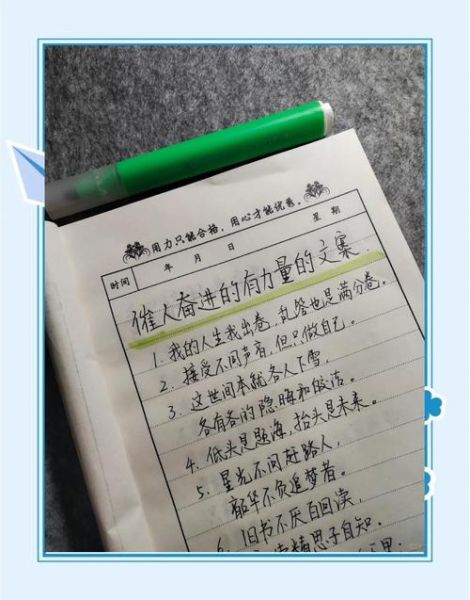 用力只能合格，用心才能优秀。
时间 年 月 日 星 期
催人奋进的有力量的文案
1. 我的人生我出卷，乱答也是满分卷。
2. 接受不同声音，但只做自己。
3. 这世间本就各人下雪，
各有各的隐晦和皎洁。
4. 低头是题海，抬头是未来。
5. 星光不问赶路人，
韶华不负追梦者。
6. 旧书不厌百回读，
精思子自知。